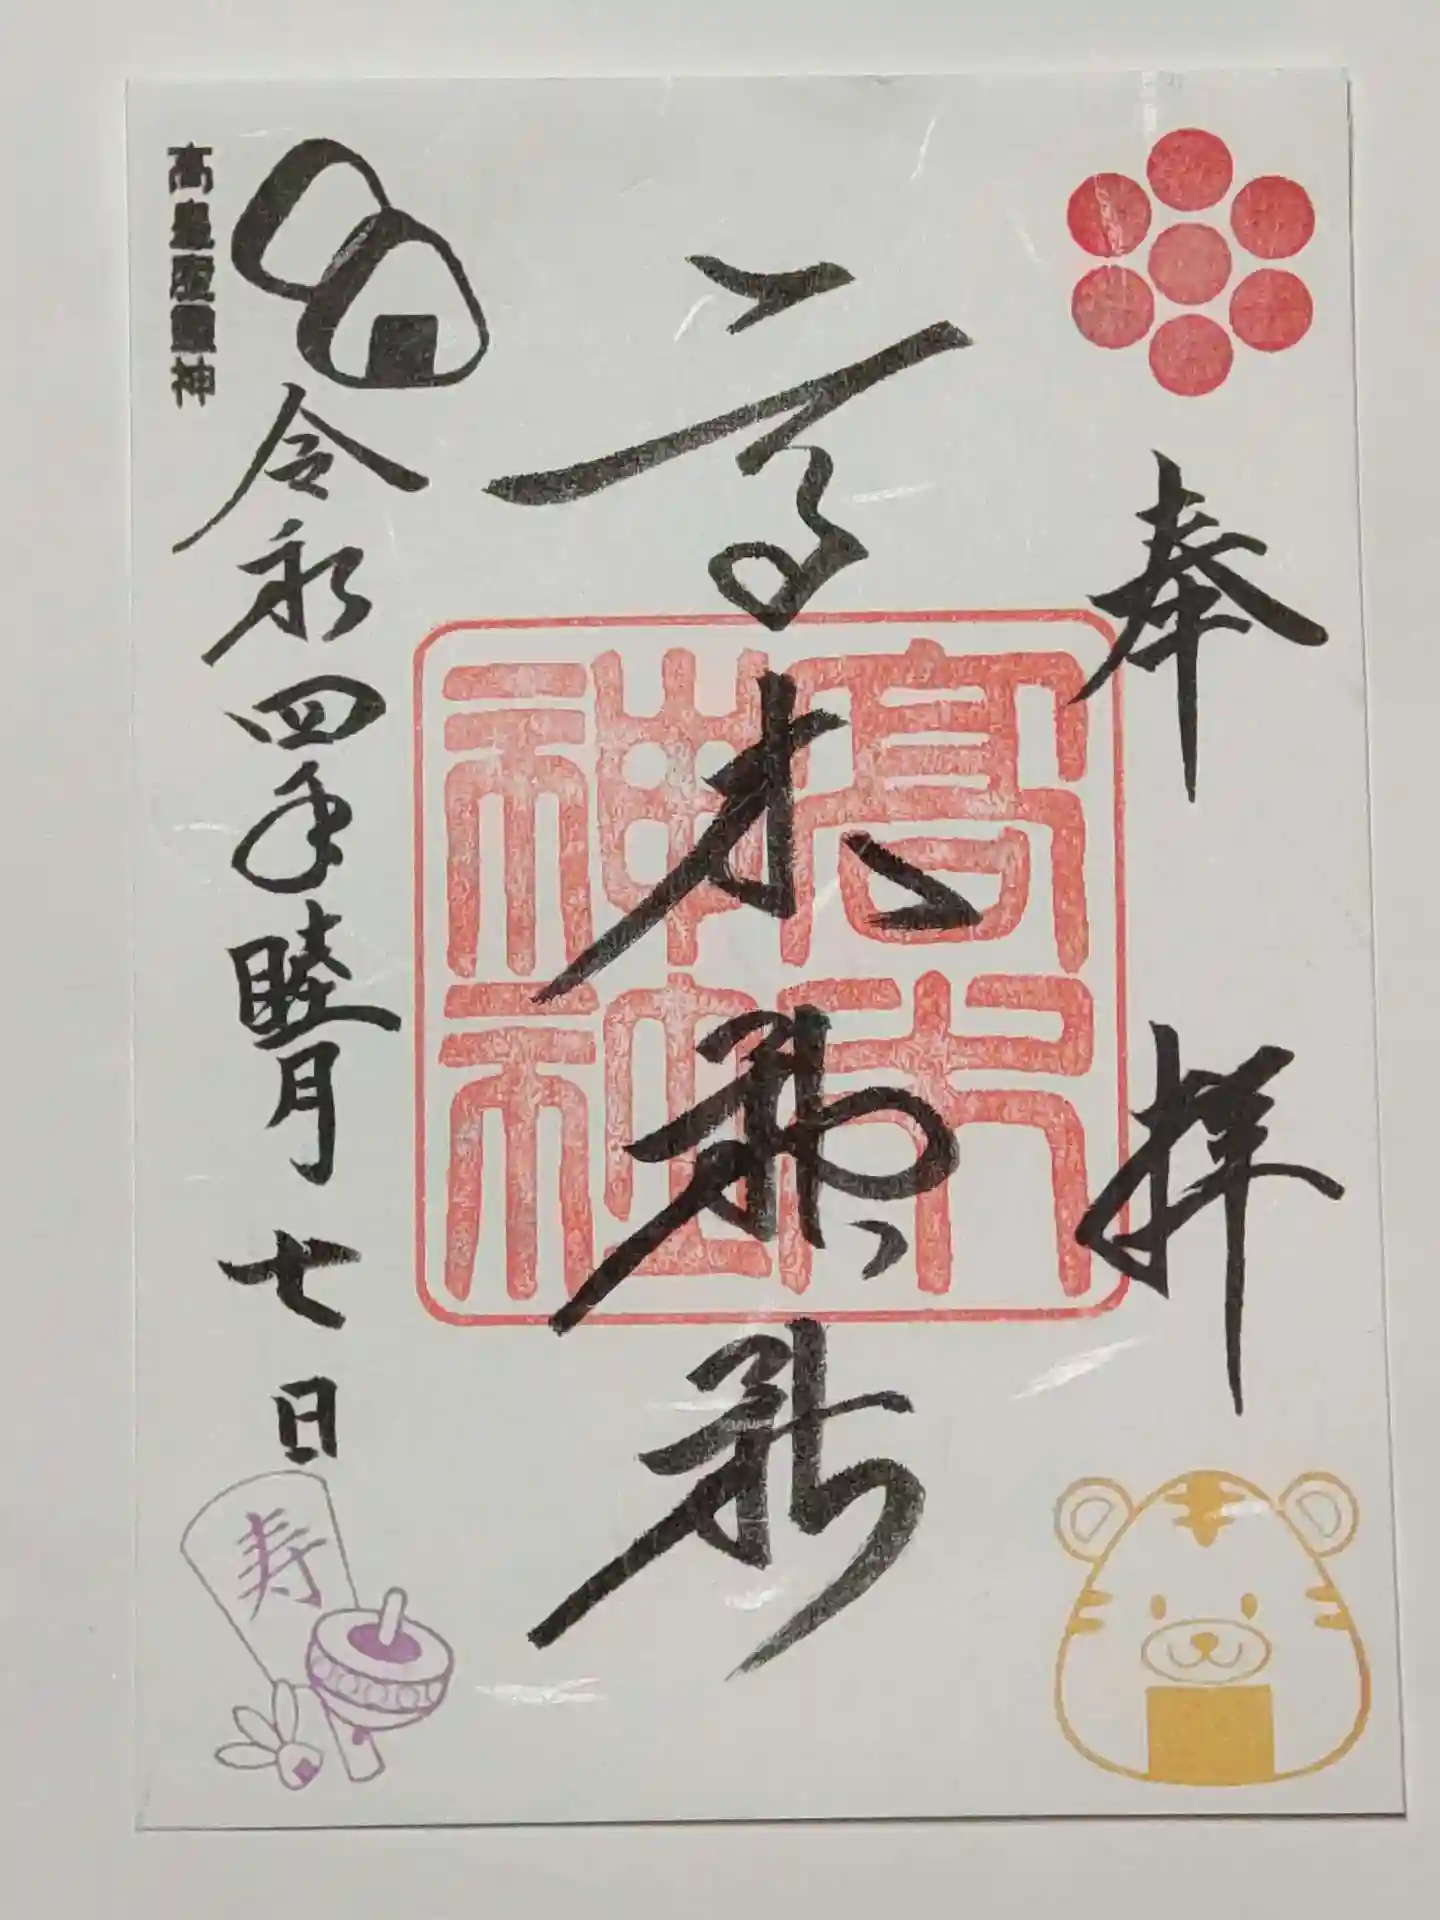 奉拝
高木神社
高木神社
高皇産霊神
令和四年睦月七日
寿